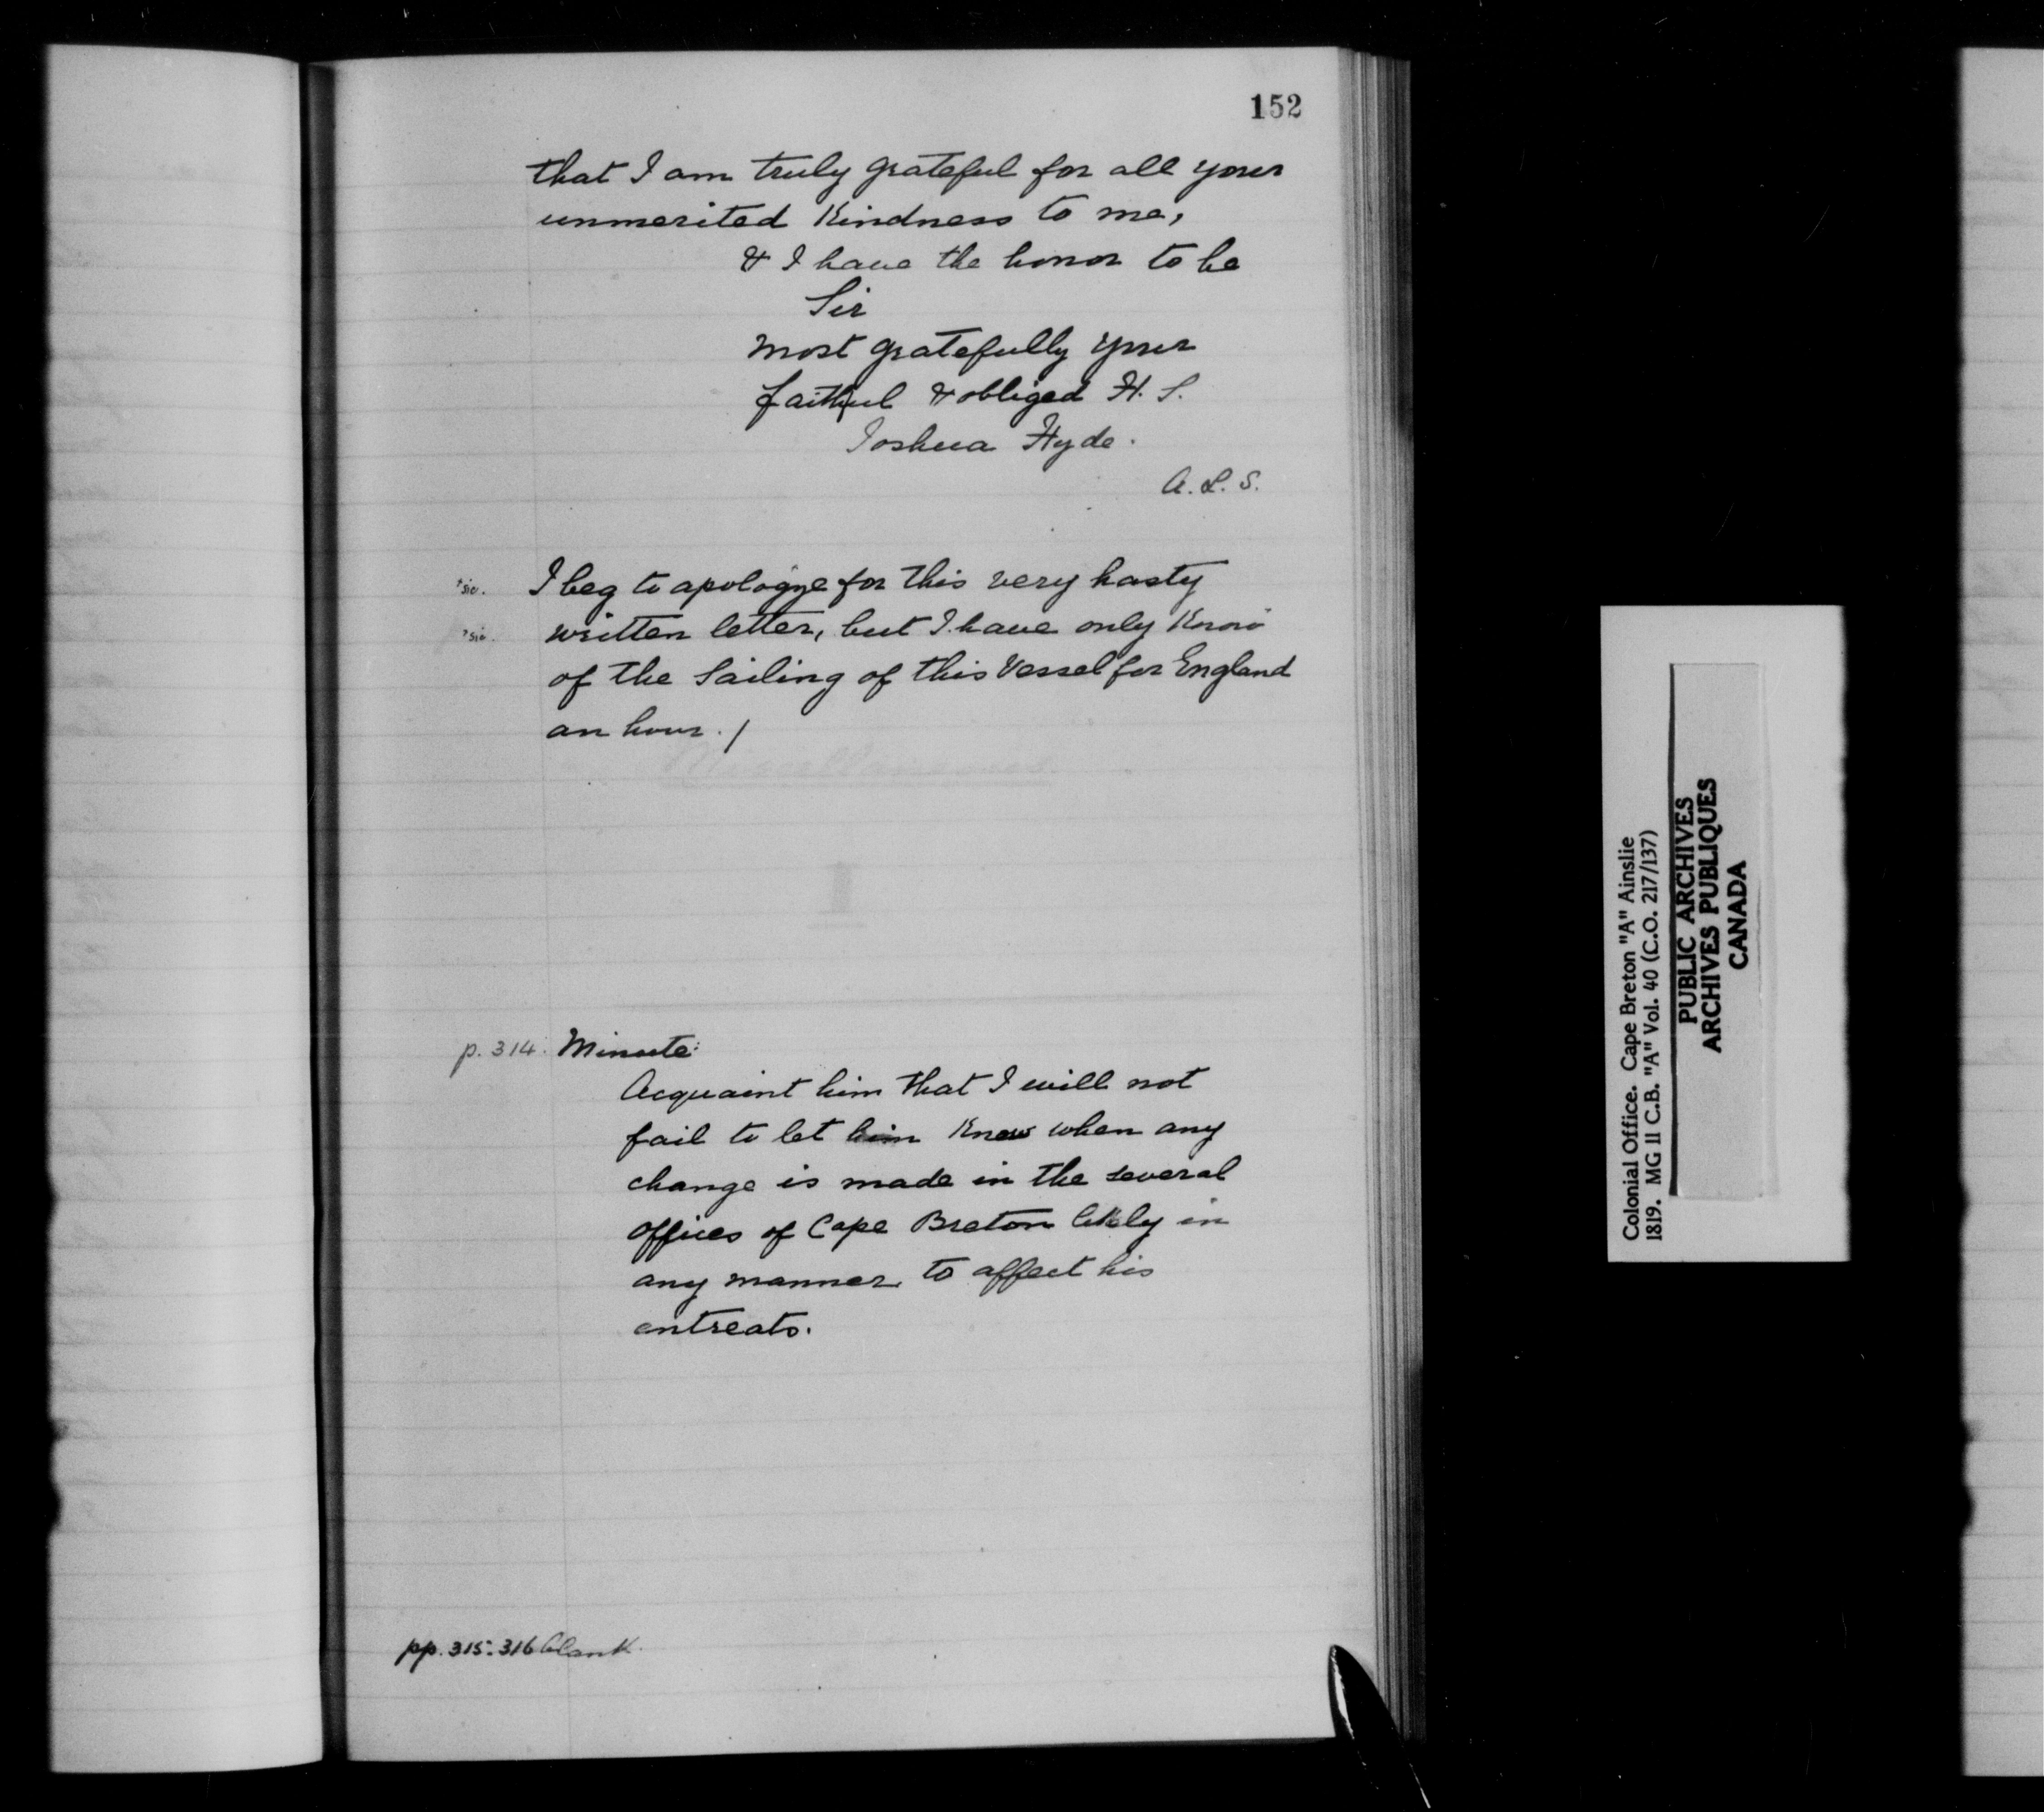 152
that I am truly grateful for all your
unmerited Kindness to me,
& I have the honor to be
Sir
most gratefully your
faithful & obliged H. S.
Joshua Hyde.
A. L. S.
sic. I beg to apologye for this very hasty
sic. written letter, but I have only Know
of the Sailing of this Vessel for England
an hour. /
Miscellaneous
p. 314. Minute:
Acquaint him that I will not
fail to let him Know when any
change is made in the several
offices of Cape Breton likely in
any manner to affect his
entreats.
pp. 315-316 blank.
Colonial Office. Cape Breton "A" Ainslie
1819. MG 11 C.B. "A" Vol. 40 (C.O. 217/137)
PUBLIC ARCHIVES
ARCHIVES PUBLIQUES
CANADA